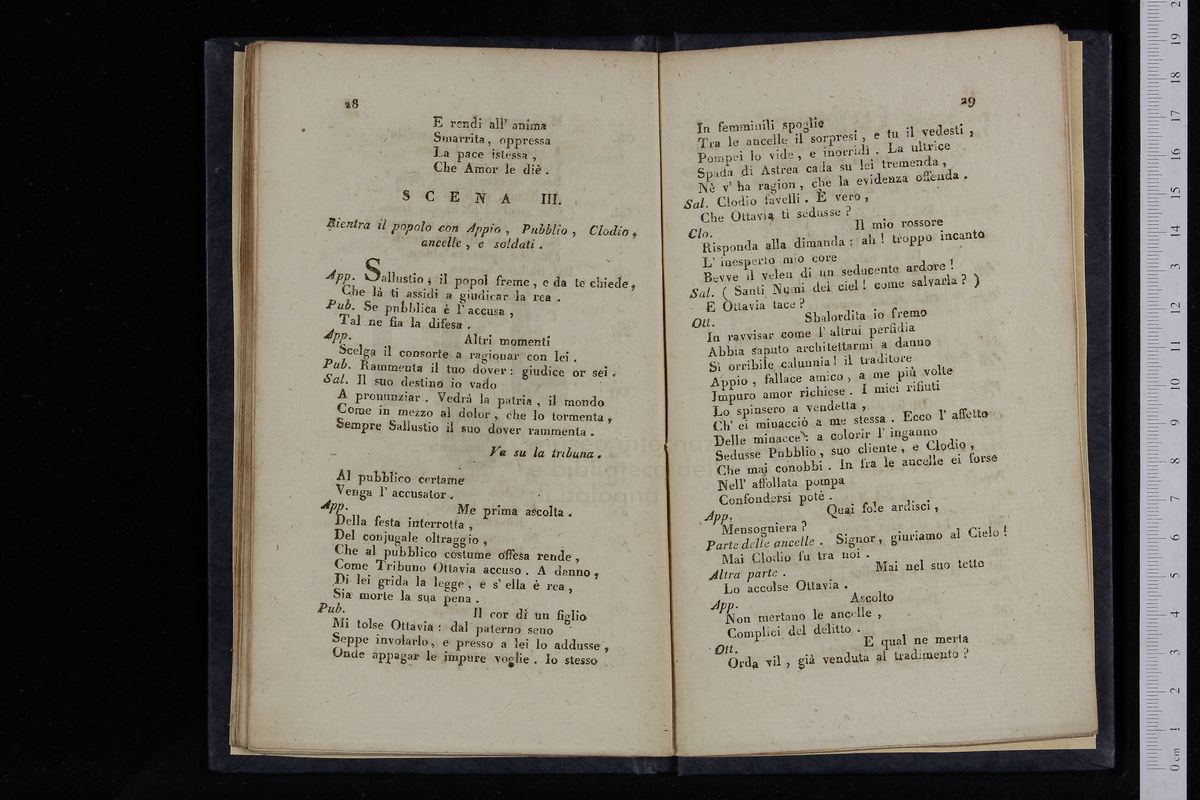 28
E rendi all' anima
Smarrita, oppressa
La pace istessa ,
Che Amor le diè .
SCENA III.
Rientra il popolo con Appio , Pubblio , Clodio ,
ancelle , e soldati .
App. Sallustio , il popol freme , e da te chiede ,
Che là ti assidi a giudicar la rea .
Pub. Se pubblica è l' accusa ,
Tal ne fia la difesa .
App. Altri momenti
Scelga il consorte a ragionar con lei .
Pub. Rammenta il tuo dover : giudice or sei .
Sal. Il suo destino io vado
A pronunziar . Vedrà la patria , il mondo
Come in mezzo al dolor , che lo tormenta ,
Sempre Sallustio il suo dover rammenta .
Va su la tribuna .
Al pubblico certame
Venga l' accusator .
App. Me prima ascolta .
Della festa interrotta ,
Del conjugale oltraggio ,
Che al pubblico costume offesa rende ,
Come Tribuno Ottavia accuso . A danno ,
Di lei grida la legge , e s' ella è rea ,
Sia morte la sua pena .
Pub. Il cor di un figlio
Mi tolse Ottavia : dal paterno seno
Seppe involarlo , e presso a lei lo addusse ,
Onde appagar le impure voglie . Io stesso
29
In femminili spoglie
Tra le ancelle il sorpresi , e tu il vedesti ,
Pompei lo vide , e inorridì . La ultrice
Spada di Astrea cada su lei tremenda ,
Nè v' ha ragion , che la evidenza offenda .
Sal. Clodio favelli . È vero ,
Che Ottavia ti sedusse ?
Clo. Il mio rossore
Risponda alla dimanda : ah ! troppo incanto
L' inesperto mio core
Bevve il velen di un seducente ardore !
Sal. ( Santi Numi del ciel ! come salvarla ? )
E Ottavia tace ?
Ott. Sbalordita io fremo
In ravvisar come l' altrui perfidia
Abbia saputo architettarmi a danno
Sì orribile calunnia ! il traditore
Appio , fallace amico , a me più volte
Impuro amor richiese . I miei rifiuti
Lo spinsero a vendetta ,
Ch' ei minacciò a me stessa . Ecco l' affetto
Delle minacce : a colorir l' inganno
Sedusse Pubblio , suo cliente , e Clodio ,
Che mai conobbi . In fra le ancelle ei forse
Nell' affollata pompa
Confondersi potè .
App. Quai fole ardisci ,
Mensogniera ?
Parte delle ancelle . Signor , giuriamo al Cielo !
Mai Clodio fu tra noi .
Altra parte . Mai nel suo tetto
Lo accolse Ottavia .
App. Ascolto
Non mertano le ancelle ,
Complici del delitto .
Ott. E qual ne merta
Orda vil , già venduta al tradimento ?